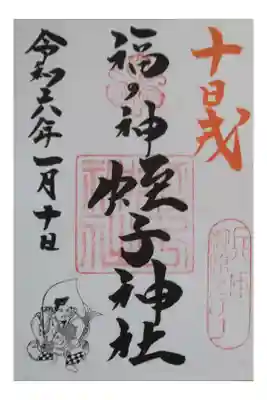 十日戎
福の神 蛭子神社
令和六年一月十日